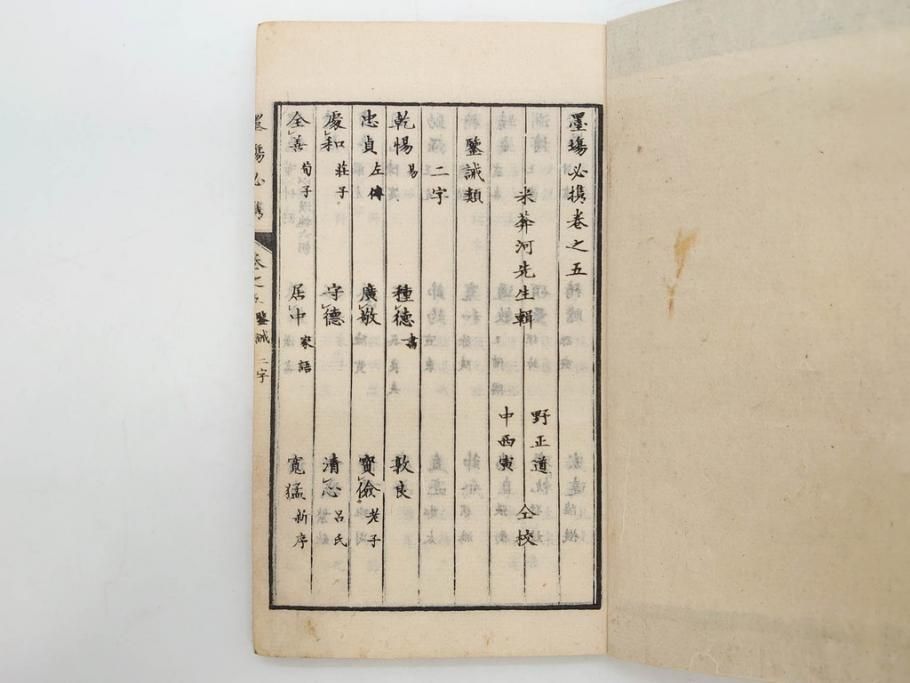 墨場必擕卷之五
米莽河先生輯
野正道
中西寅
仝校
鑒誡類
二字
乾惕 易 種德 書 敦良
忠貞 左傳 廣敬 寳儉 老子
處和 莊子 守德 清心 呂氏
全善 荀子 居中 家語 寬猛 新序
墨場必擕 卷之五 鑒誡 二字